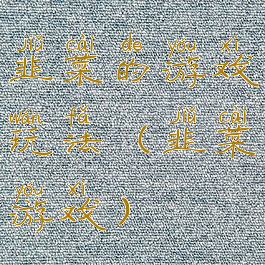 jiǔ cài de yóu xì
韭菜的游戏
wán fǎ jiǔ cài
玩法（韭菜
yóu xì
游戏）